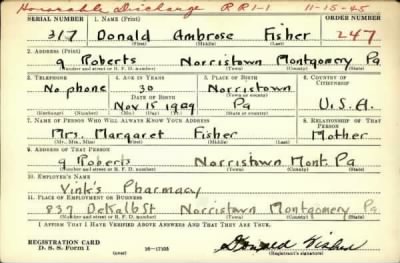 Honorable Discharge RR1-1 11-15-45
SERIAL NUMBER 1. NAME (Print) ORDER NUMBER
317 Donald Ambrose Fisher 247
(First) (Middle) (Last)
2. ADDRESS (Print)
9 Roberts Norristown Montgomery Pa
(Number and street or R. F. D. number) (Town) (County) (State)
3. TELEPHONE 4. AGE IN YEARS 5. PLACE OF BIRTH 6. COUNTRY OF CITIZENSHIP
No phone 30 Norristown
DATE OF BIRTH (Town or county)
Nov 15 1909 Pa U.S.A.
(Exchange) (Number) (Mo.) (Day) (Yr.) (State or country)
7. NAME OF PERSON WHO WILL ALWAYS KNOW YOUR ADDRESS 8. RELATIONSHIP OF THAT PERSON
Mrs. Margaret Fisher Mother
(Mr., Mrs., Miss) (First) (Middle) (Last)
9. ADDRESS OF THAT PERSON
9 Roberts Norristown Mont. Pa
(Number and street or R. F. D. number) (Town) (County) (State)
10. EMPLOYER'S NAME
Vink's Pharmacy
11. PLACE OF EMPLOYMENT OR BUSINESS
837 DeKalb St Norristown Montgomery Pa
(Number and street or R. F. D. number) (Town) (County) (State)
I AFFIRM THAT I HAVE VERIFIED ABOVE ANSWERS AND THAT THEY ARE TRUE.
REGISTRATION CARD
D. S. S. Form 1 (over) 16—17105 Donald Fisher
(Registrant's signature)